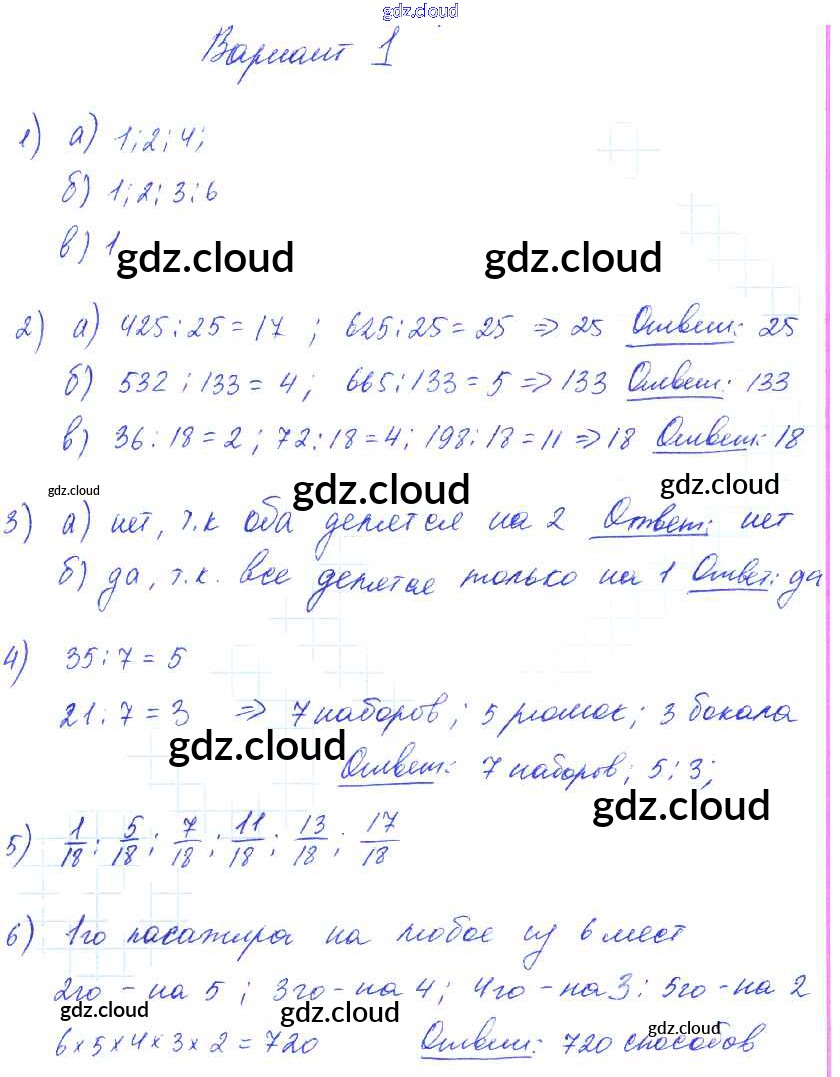 gdz.cloud
Вариант 1
1) а) 1; 2; 4;
б) 1; 2; 3; 6
в) 1
gdz.cloud gdz.cloud
2) а) 425 : 25 = 17 ; 625 : 25 = 25 => 25 Ответ: 25
б) 532 : 133 = 4 ; 665 : 133 = 5 => 133 Ответ: 133
в) 36 : 18 = 2 ; 72 : 18 = 4 ; 198 : 18 = 11 => 18 Ответ: 18
gdz.cloud gdz.cloud gdz.cloud
3) а) нет, т.к оба делятся на 2 Ответ: нет
б) да, т.к. все делятся только на 1 Ответ: да
4) 35 : 7 = 5
21 : 7 = 3 => 7 наборов ; 5 рюмок ; 3 бокала
gdz.cloud
Ответ: 7 наборов ; 5 ; 3 ;
gdz.cloud
5) 1/18 ; 5/18 ; 7/18 ; 11/18 ; 13/18 ; 17/18
6) 1го пасажира на любое из 6 мест
2го - на 5 ; 3го - на 4 ; 4го - на 3 ; 5го - на 2
gdz.cloud gdz.cloud gdz.cloud
6 x 5 x 4 x 3 x 2 = 720 Ответ: 720 способов